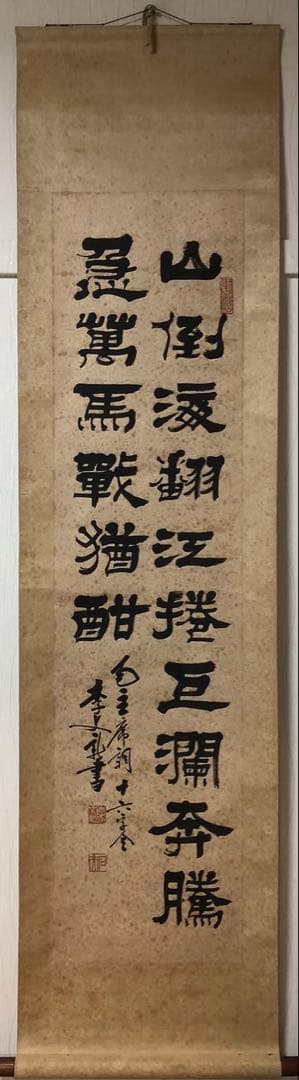 山倒海翻江捲巨瀾奔騰
急萬馬戰猶酣
毛主席詞十六字令
李 書